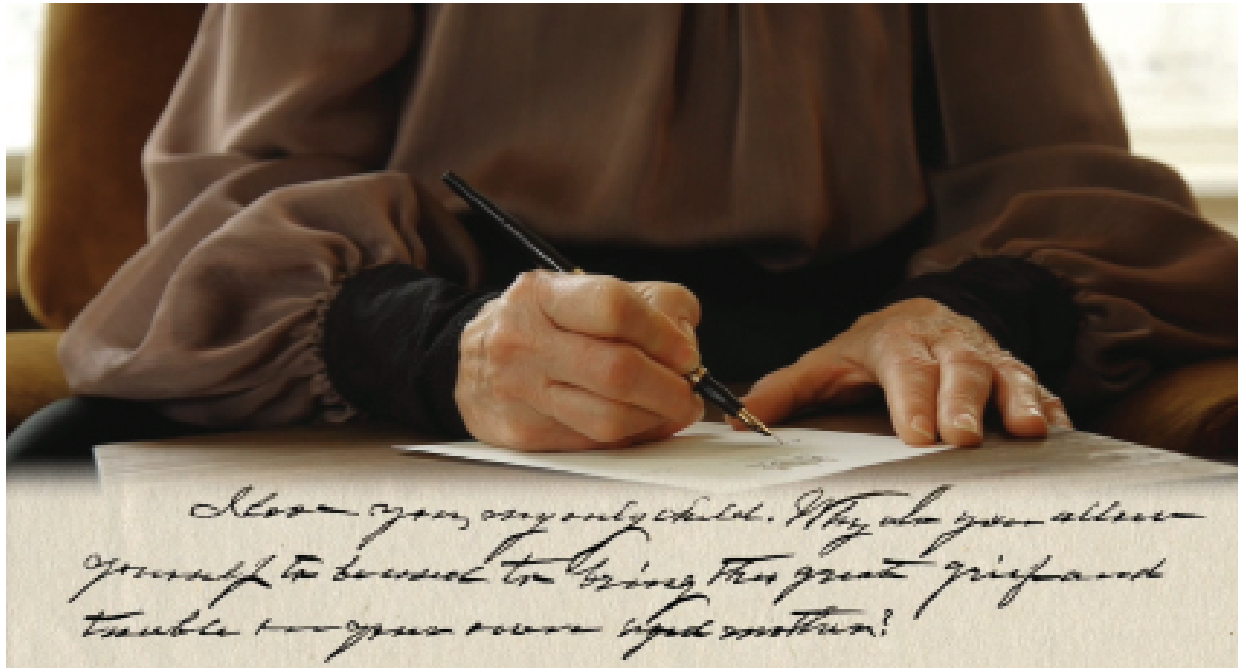 I love you, my only child. Why do you allow
yourself to be used to bring this great grief and
trouble on your own aged mother?